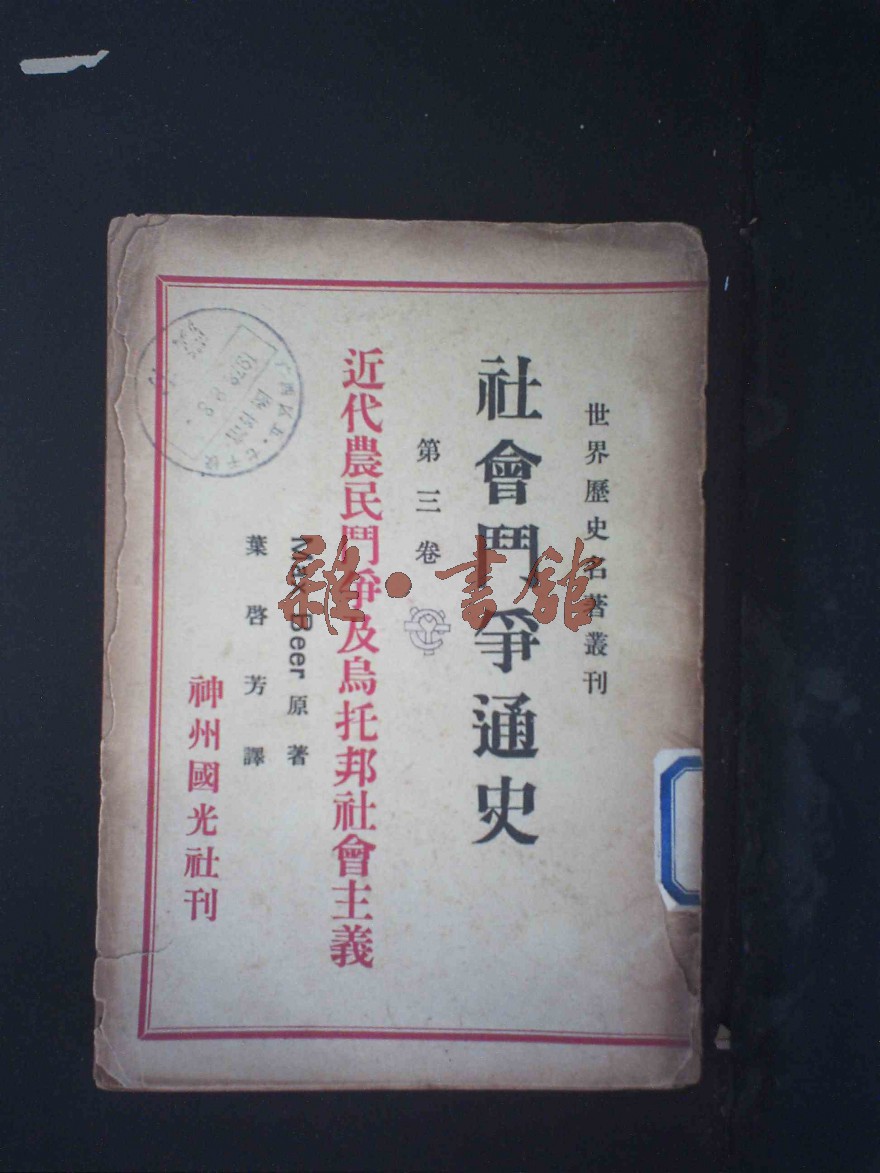 世界歷史名著叢刊
社會鬥爭通史
第三卷
近代農民鬥爭及烏托邦社會主義
Max Beer 原著
葉啓芳譯
神州國光社刊
雜·書館